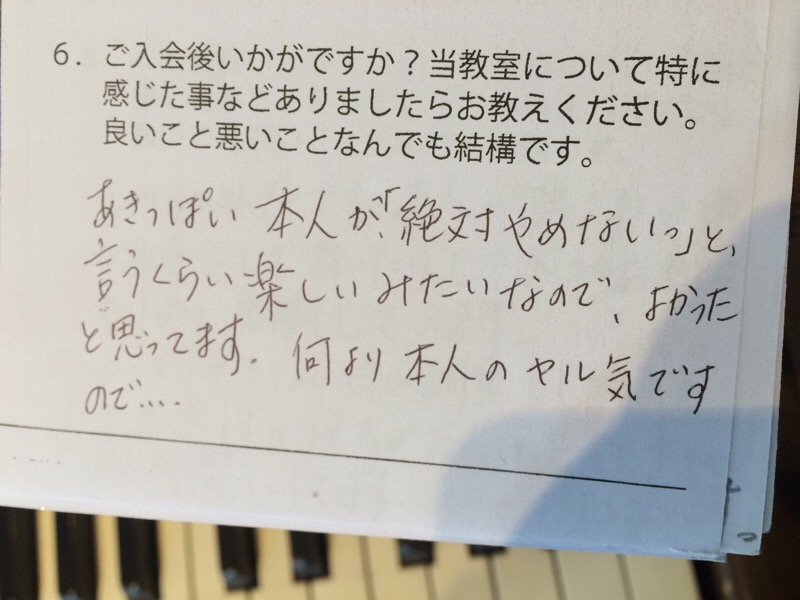 6. ご入会後いかがですか？当教室について特に
感じた事などありましたらお教えください。
良いこと悪いことなんでも結構です。
あきっぽい本人が、「絶対やめないっ」と、
言うくらい楽しいみたいなので、よかった
と思ってます. 何より本人のヤル気です
ので....